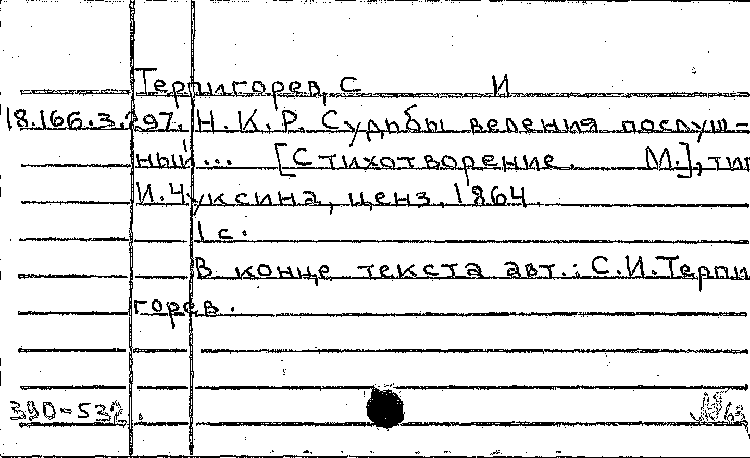 Терпигорев, С И
18.166.3.297. Н.К.Р. Судьбы веления послуш-
ный... [Стихотворение. М.], тип
И. Чуксина, ценз. 1864.
1 с.
В конце текста авт.: С.И.Терпи
горев.
390-532.